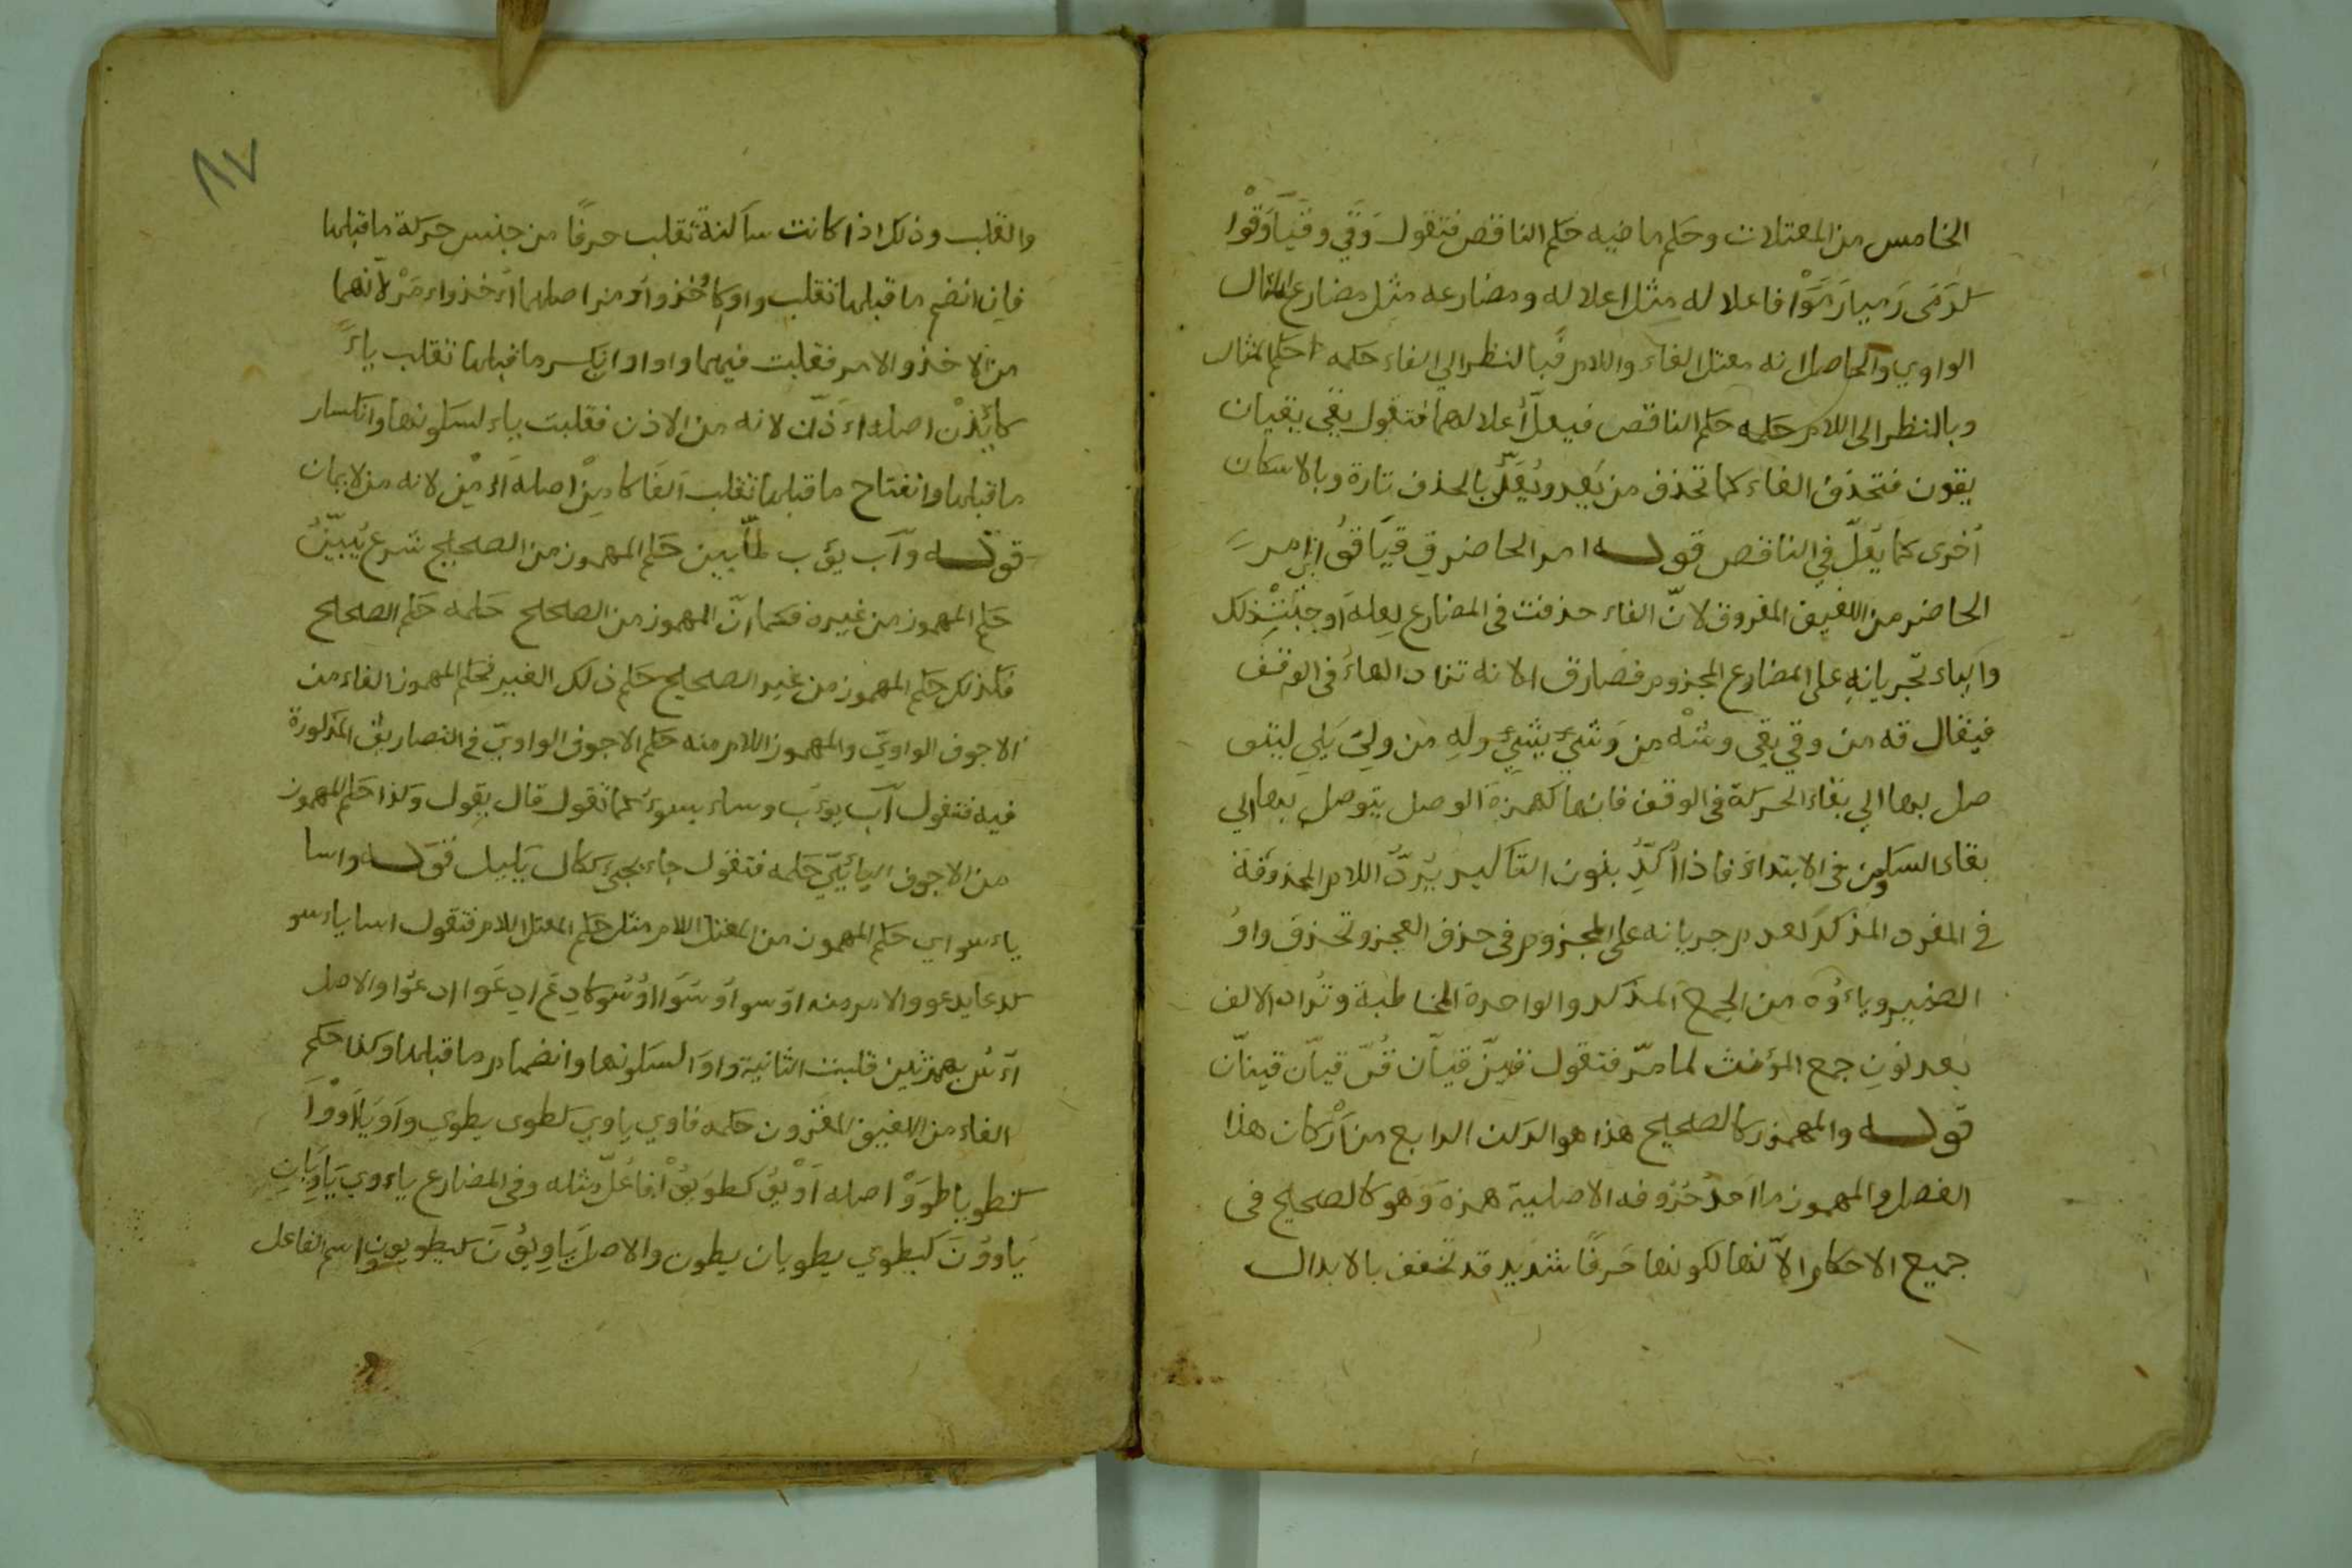 الخامس من المعتلات وحكم ماضيه حكم الناقص فتقول وَقَي وقَيَا وَقَوْا
كرَمَى رَميا رَمَوْا فاعلاله مثل اعلاله ومضارعه مثل مضارع المثال
الواوي والحاصل انه معتل الفاء واللام فبالنظر الي الفاء حكمه حكم المثال
وبالنظر الى اللام حكمه حكم الناقص فيعلّ أعلالهما فتقول يقي يقيان
يقون فتحذف الفاء كما تحذف من يَعِد ويُعَلّ بالحذف تارة وبالاسكان
أخرى كما يُعَلّ في الناقص قوله امر الحاضر قِ قيَا قُوا
الحاضر من اللفيف المفروق لانّ الفاء حذفت في المضارع لعلة اوجبت ذلك
والياء تجريانه على المضارع المجزوم فصار ق الا انه تزاد الهاء في الوقف
فيقال قه من وقي يقي وشه من وشي يشي ولِه من ولي يلي ليتو
صل بها الي بقاء الحركة في الوقف فانها كهمزة الوصل يتوصل بها الي
بقاء الساكن في الابتداء فاذا أكّد بنون التاكيد يُردّ اللام المحذوفة
في المفرد المذكر لعدم جريانه على المجزوم في حذف العجز وتحذف واو
الضمير وياءُوه من الجمع المذكر والواحدة المخاطبة وتُزاد الالف
بعد نونِ جمع المؤنث لما مرّ فتقول قينّ قيانّ قُنّ قيانّ قينانّ
قوله والمهموز كالصحيح هذا هو الركن الرابع من أركان هذا
الفصل والمهموز ما احدُ حُرُوفه الاصلية همزة وهو كالصحيح في
جميع الاحكام الا انها لكونها حَرفًا شديد قد تخفف بالابدال
والقلب وذلك اذا كانت ساكنة تقلب حرفًا من جنس حركة ما قبلها
فاِن انضم ما قبلها تقلب واو كاُوخذ واُومر اصلهما أُءخذ واُءمُرْ لانهما
من الاخذ والامر فقلبت فيهما واوا وان كسر ما قبلها تقلب ياءً
كائذنْ اصله اءذن لانه من الاذن فقلبت ياء لسكونها وانكسار
ما قبلها وانفتاح ما قبلها تقلب الفًا كامِنْ اصله أَءْمِن لانه من الايمان
قوله وآب يؤب لمّا بين حكم المهموز من الصحيح شرع يُبيّنُ
حكم المهموز من غيره فكما انّ المهموز من الصحيح حكمه حكم الصحيح
فكذلك حكم المهموز من غير الصحيح حكم ذلك الغير فحكم المهموز الفاء من
الاجوف الواويّ والمهموز اللام منه حكم الاجوف الواويّ في التصاريف المذكورة
فيه فتقول آب يوءب وساء يسوء كما تقول قال يقول وكذا حكم المهموز
من الاجوف اليائيّ حكمه فتقول جاء يجيء ككال يكيل قوله واسا
ياءسو اي حكم المهموز من المعتل اللام مثل حكم المعتل اللام فتقول اسا ياءسو
كدعا يدعو والامر منه اوس اُوسوا كادعُ ادعوا ادعوا والاصل
اُءسُ بهمزتين قلبت الثانية واوا لسكونها وانضمام ما قبلها وكذا حكم
الفاء من اللفيف المقرون حكمه فاوي ياوي كطوى يطوي واَوَيَا اَوَوْا
كطويا طوَوْا اصله اَوَيُوْ كطوَيُوْا فاعُلّ مثله وفي المضارع ياءوي يَاوِيَانِ
يَاوُوْنَ كيطوي يطويان يطوون والاصل يَاوِيُوْنَ كيطويون واسم الفاعل